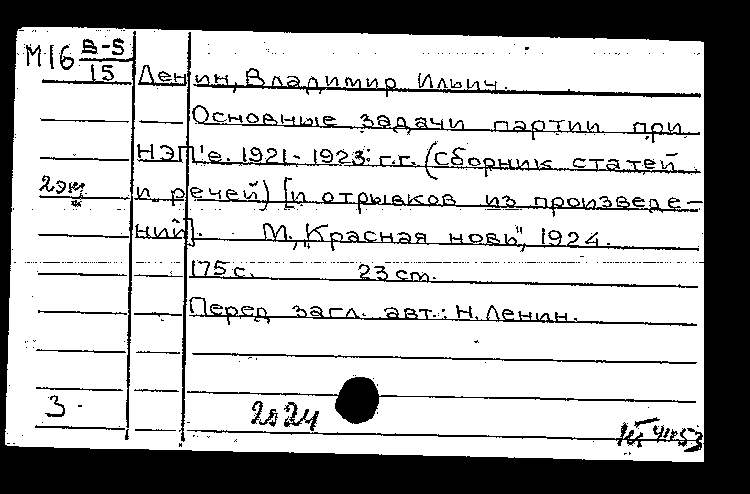 М16 В-5
15
Ленин, Владимир Ильич.
Основные задачи партии при
НЭП'е. 1921-1923 г.г. (Сборник статей
2 эк
и речей) [и отрывков из произведе-
ний]. М., "Красная новь", 1924.
175 с. 23 см.
Перед загл. авт.: Н. Ленин.
3
2024